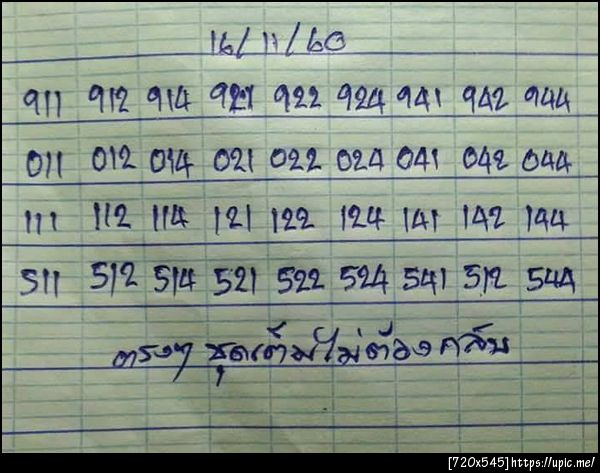 16/11/60
911 912 914 921 922 924 941 942 944
011 012 014 021 022 024 041 042 044
111 112 114 121 122 124 141 142 144
511 512 514 521 522 524 541 512 544
ตรงๆ ชุดเต็มไม่ต้องกลับ
[720x545]https://upic.me/